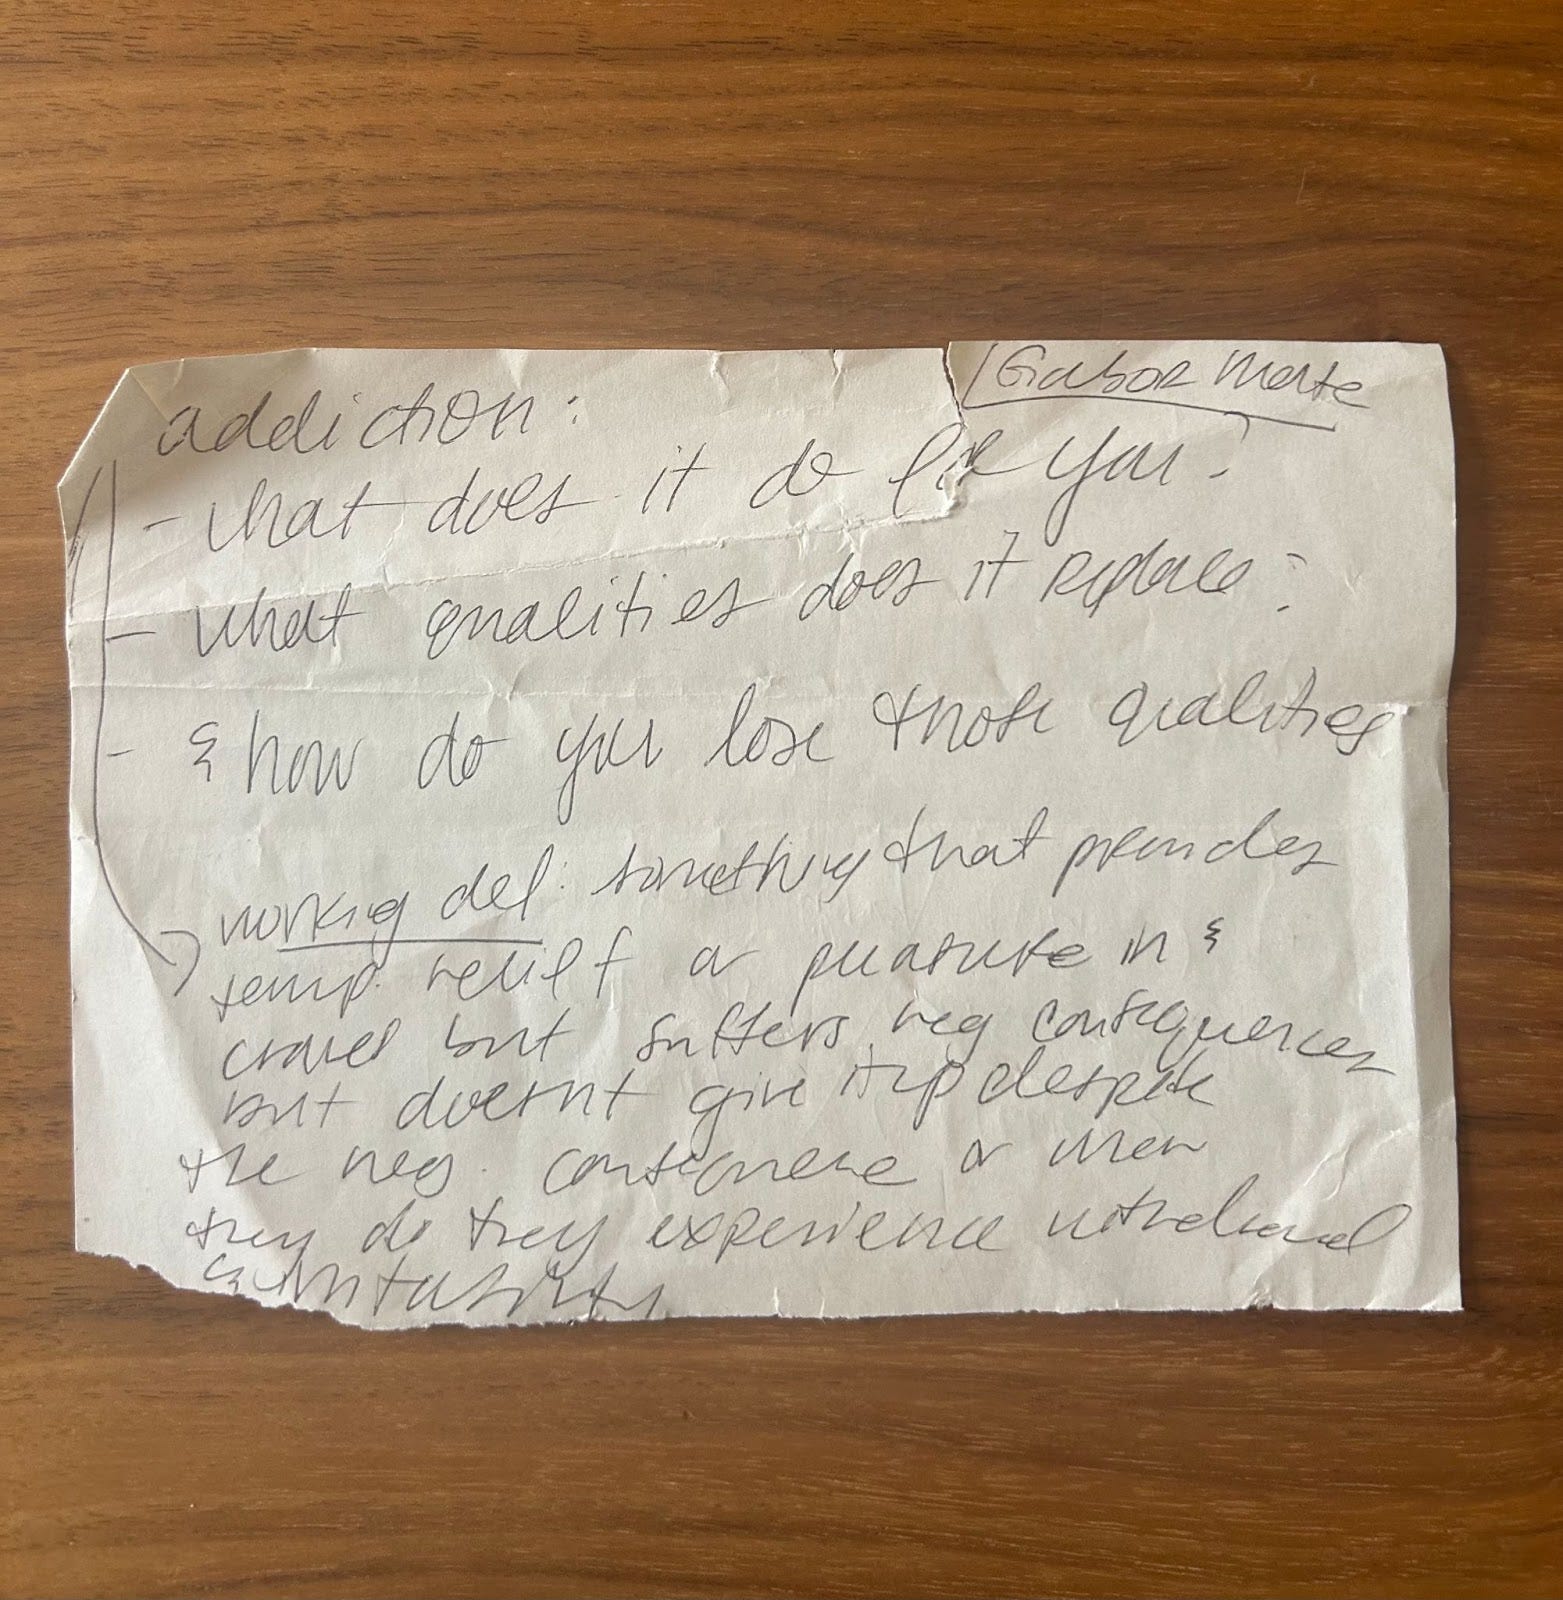 Gabor Mate
addiction:
- what does it do for you?
- what qualities does it replace?
- & how do you lose those qualities
working def: something that provides
temp. relief or pleasure in &
craves but suffers neg consequences
but doesnt give it up despite
the neg. consequence or when
they do they experience withdrawal
& irritability